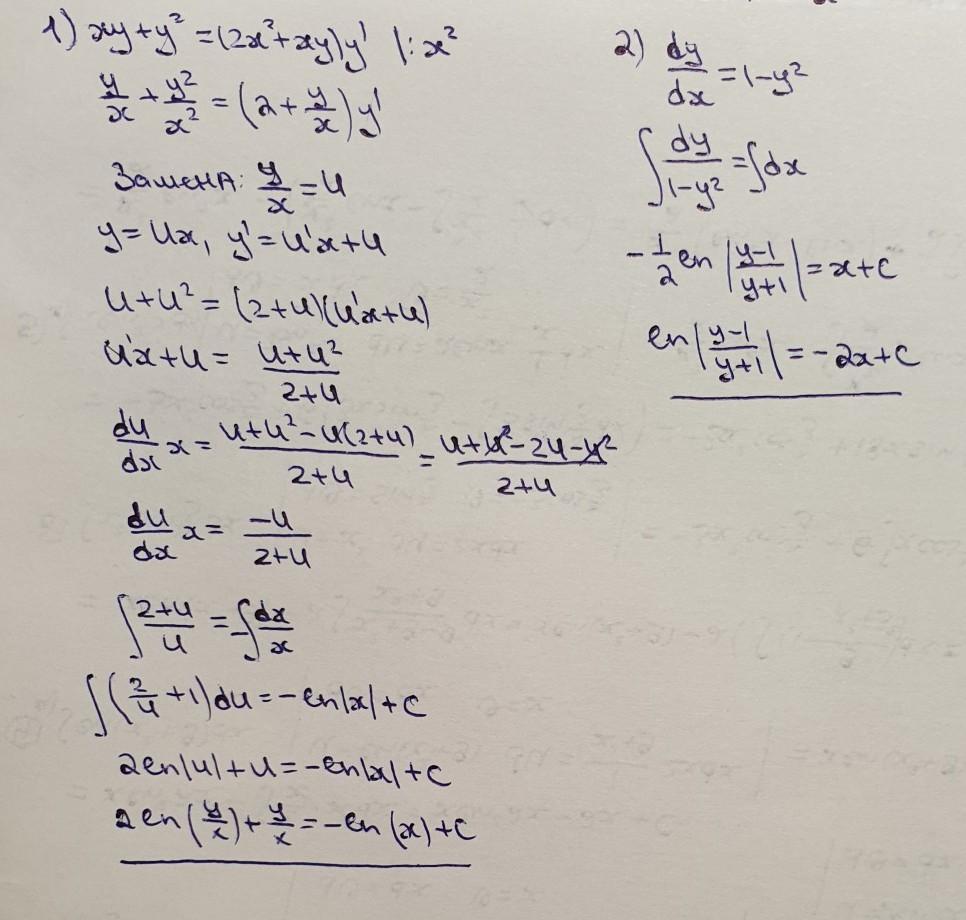 1) xy+y² =(2x²+xy)y' |:x²
y/x + y²/x² = (2+y/x)y'
Замена: y/x = u
y=ux, y'=u'x+u
u+u² = (2+u)(u'x+u)
u'x+u = (u+u²)/(2+u)
du/dx x = (u+u²-u(2+u))/(2+u) = (u+u²-2u-u²)/(2+u)
du/dx x = -u/(2+u)
∫ (2+u)/u = -∫ dx/x
∫(2/u +1)du = -ln|x|+c
2ln|u|+u = -ln|x|+c
2ln(y/x)+y/x = -ln(x)+c
2) dy/dx = 1-y²
∫ dy/(1-y²) = ∫dx
-1/2 ln |(y-1)/(y+1)| = x+c
ln |(y-1)/(y+1)| = -2x+c